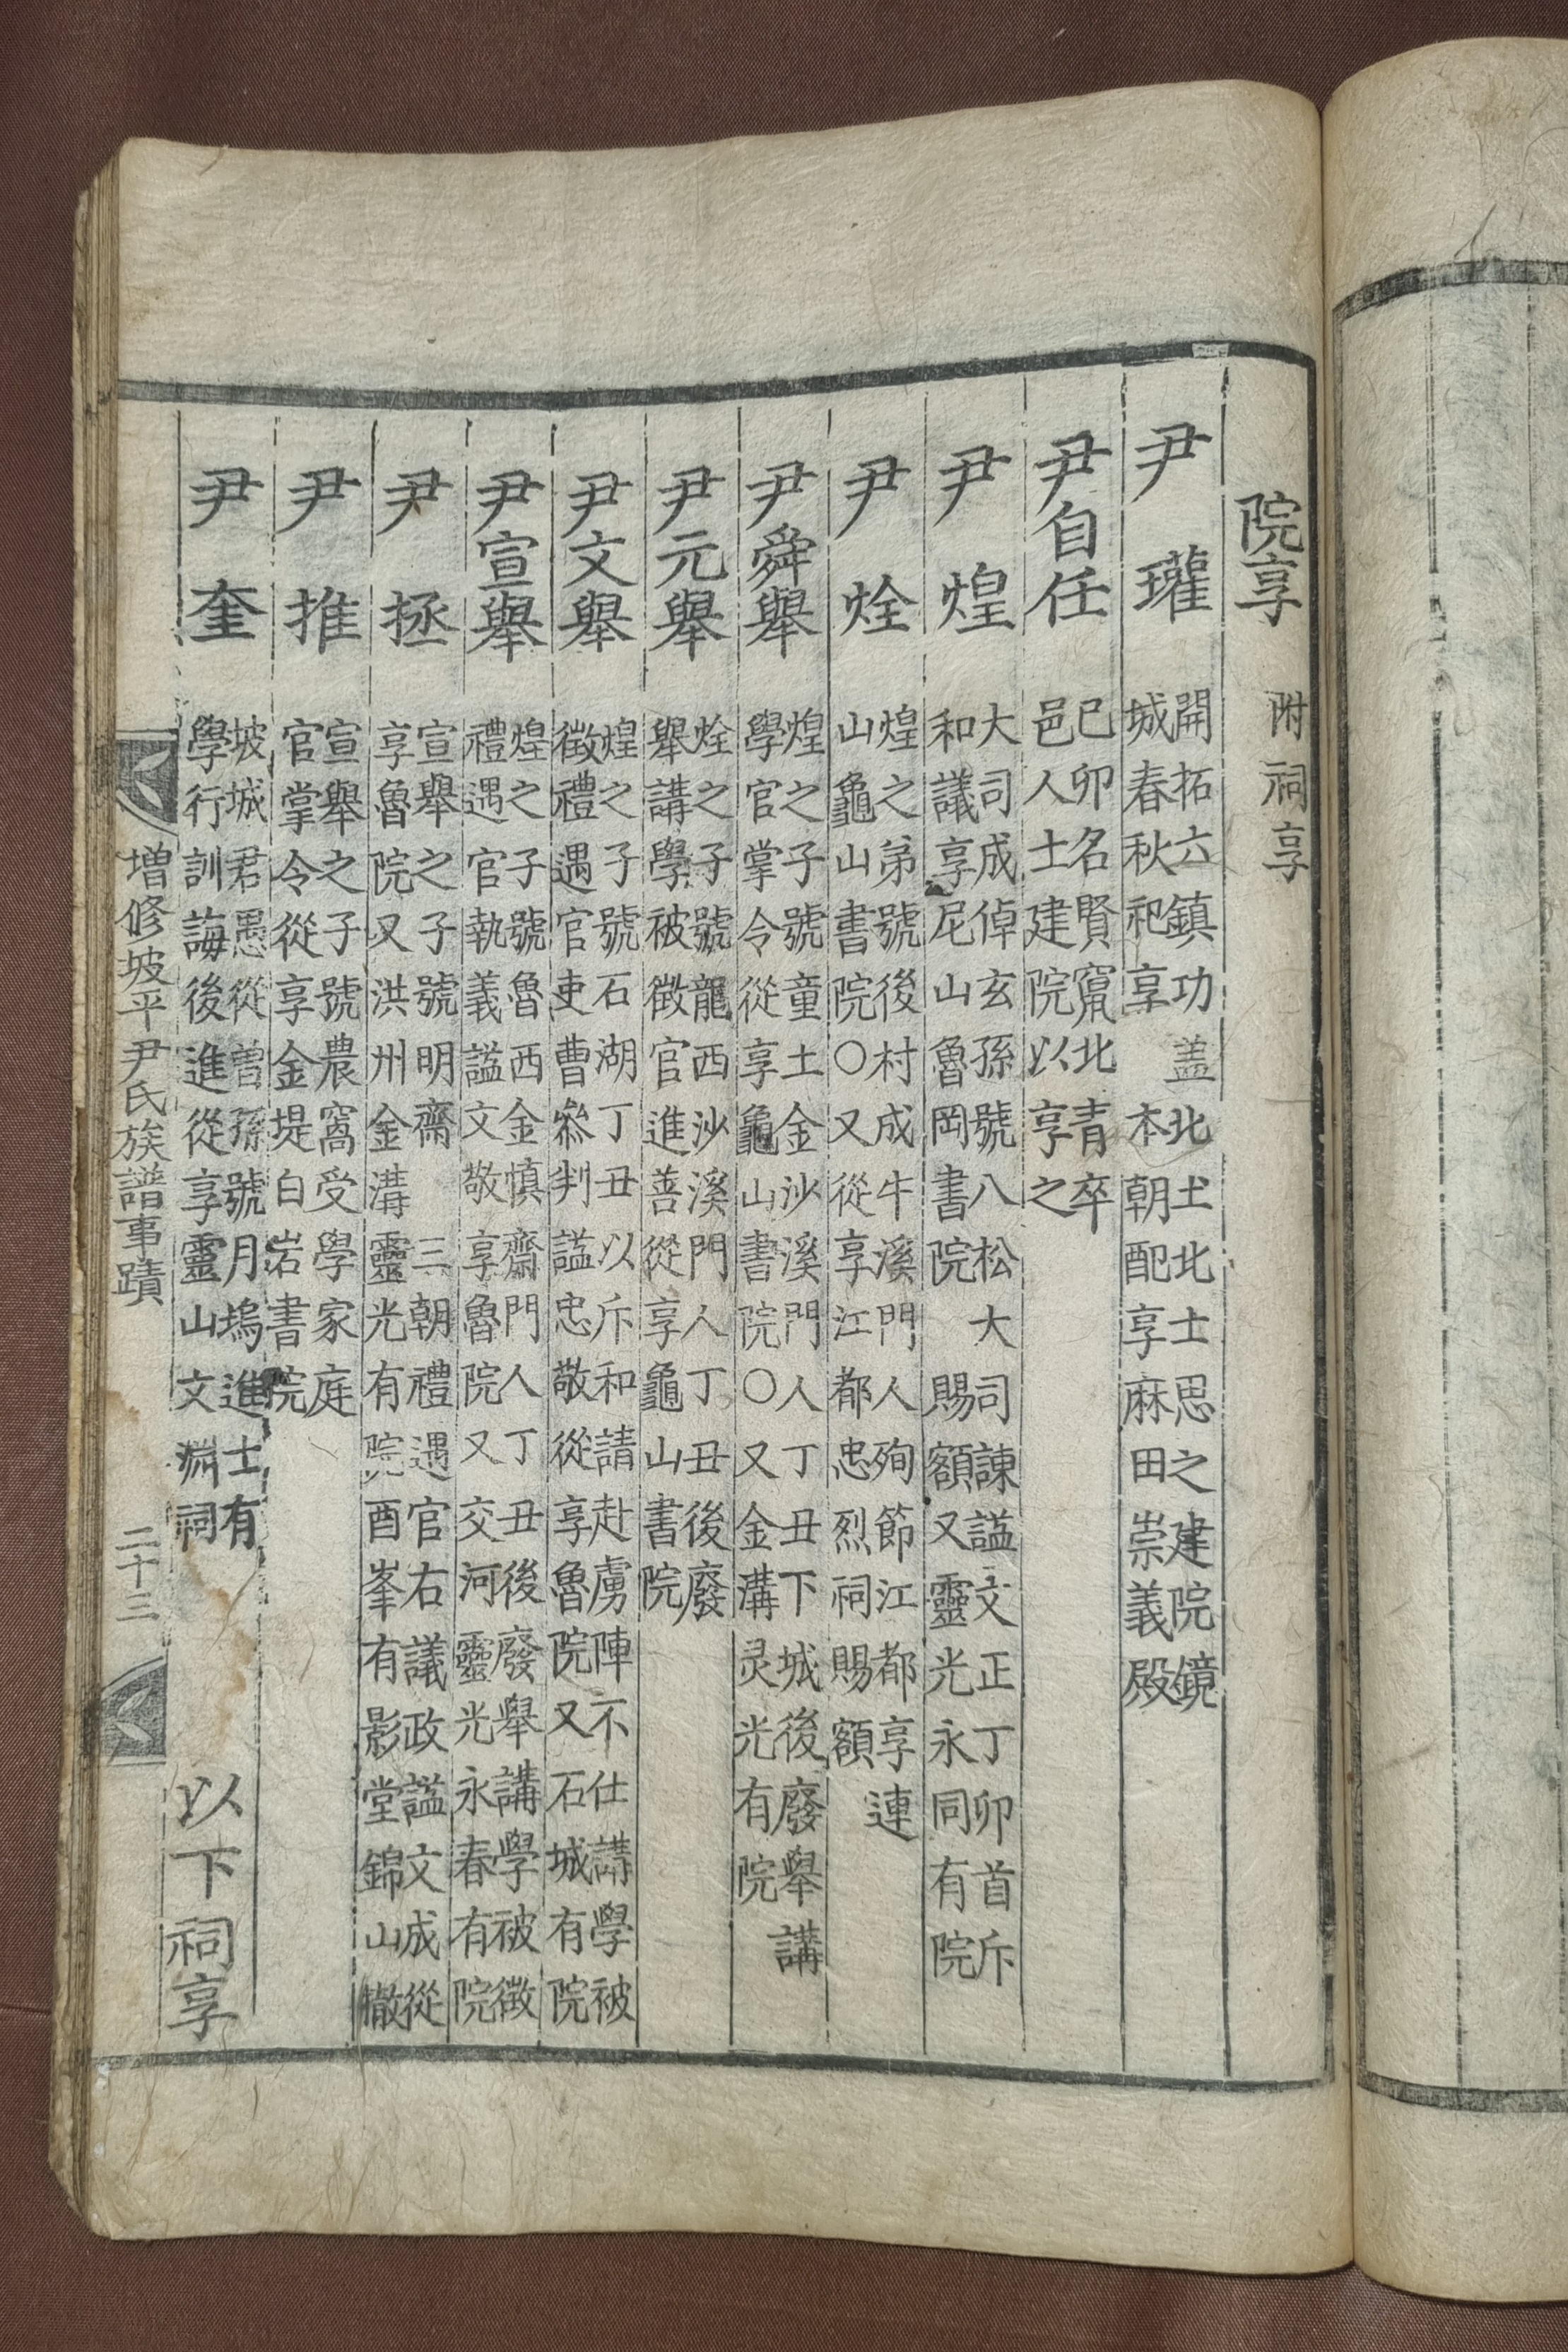 院享 附祠享
尹瓘 開拓六鎮功盖北土北士思之建院鏡
城春秋祀享 本朝配享麻田崇義殿
尹自任 己卯名賢竄北青卒
邑人士建院以享之
尹煌 大司成倬玄孫號八松大司諫謚文正丁卯首斥
和議享尼山魯岡書院 賜額又靈光永同有院
尹烇 煌之弟號後村成牛溪門人殉節江都享連
山龜山書院〇又從享江都忠烈祠賜額
尹舜擧 煌之子號童土金沙溪門人丁丑下城後廢擧講
學官掌令從享龜山書院〇又金溝灵光有院
尹元擧 烇之子號龍西沙溪門人丁丑後廢
擧講學被徵官進善從享龜山書院
尹文擧 煌之子號石湖丁丑以斥和請赴虜陣不仕講學被
徵禮遇官吏曹叅判謚忠敬從享魯院又石城有院
尹宣擧 煌之子號魯西金慎齋門人丁丑後廢擧講學被徵
禮遇官執義謚文敬享魯院又交河靈光永春有院
尹拯 宣擧之子號明齋 三朝禮遇官右議政謚文成從
享魯院又洪州金溝靈光有院酉峯有影堂錦山轍
尹推 宣擧之子號農窩受學家庭
官掌令從享金堤白岩書院
尹奎 坡城君愚從曽孫號月塢進士有
學行訓誨後進從享靈山文淵祠 以下祠享
增修坡平尹氏族譜事蹟 二十三